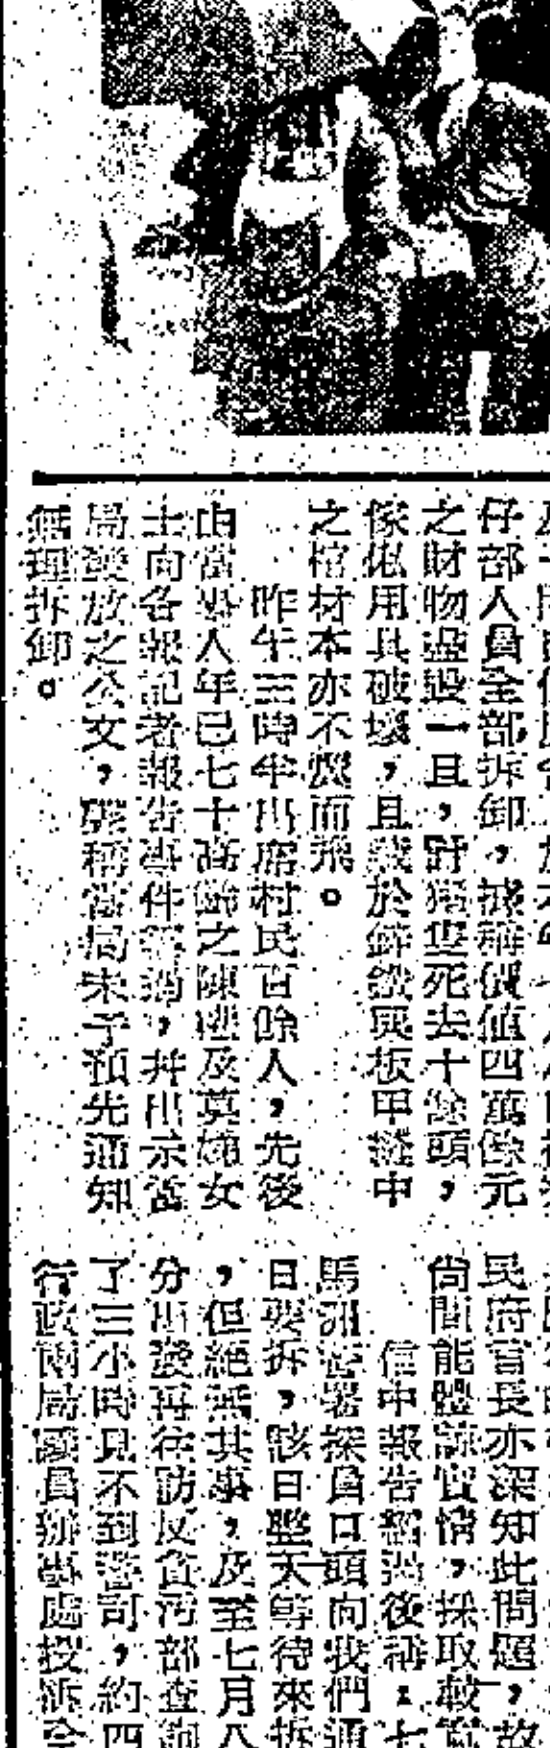 仔部人員全部拆卸，據稱價值四萬餘元
之財物盡毀一旦，豬隻死去十餘頭，
傢俬用具破壞，且於鋅鐵與板甲中
之棺材本亦不翼而飛。
昨午三時半出席村民百餘人，先後
由當事人年已七十高齡之陳及莫婦女
士向各報記者報告事件經過，并出示當
局發放之公文，聲稱當局未予預先通知
無理拆卸。
民府官長亦深知此問題，故
尚間能體諒實情，採取較
信中報告經過後稱：七
馬洲警署探員口頭向我們通
日要拆，該日整天等待來拆
，但絕無其事，及至七月八
分出發再往訪反貪污部查詢
了三小時見不到警司，約四
行政兩局議員辦事處投訴全